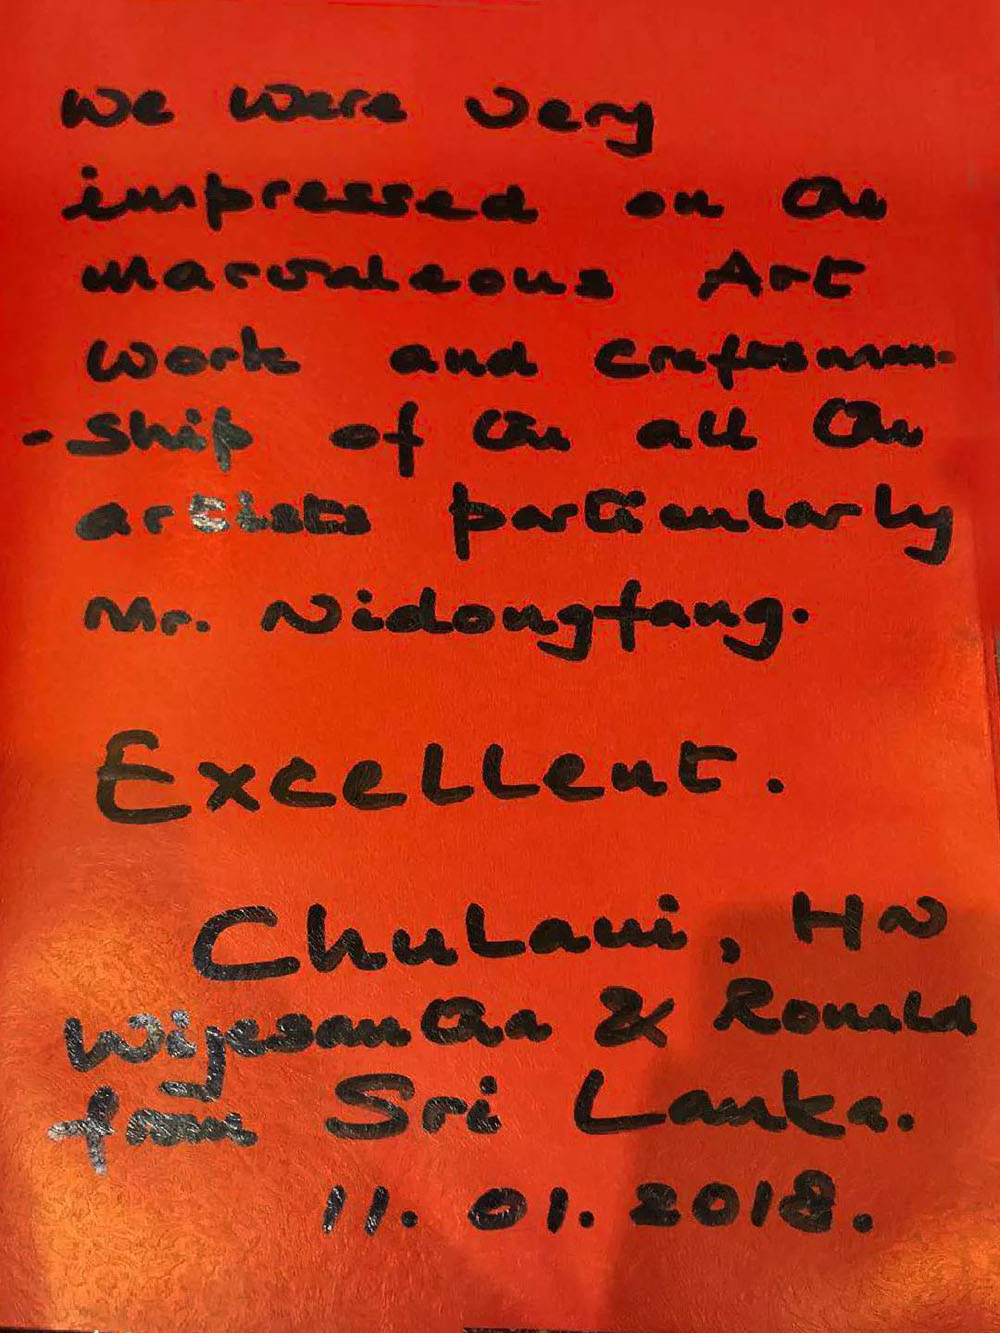 We were very
impressed on the
marvaleous Art
work and craftsman-
-ship of the all the
artists particularly
Mr. Nidongfang.
Excellent.
Chulani, HN
Wijesantha & Ronald
from Sri Lanka.
11. 01. 2018.